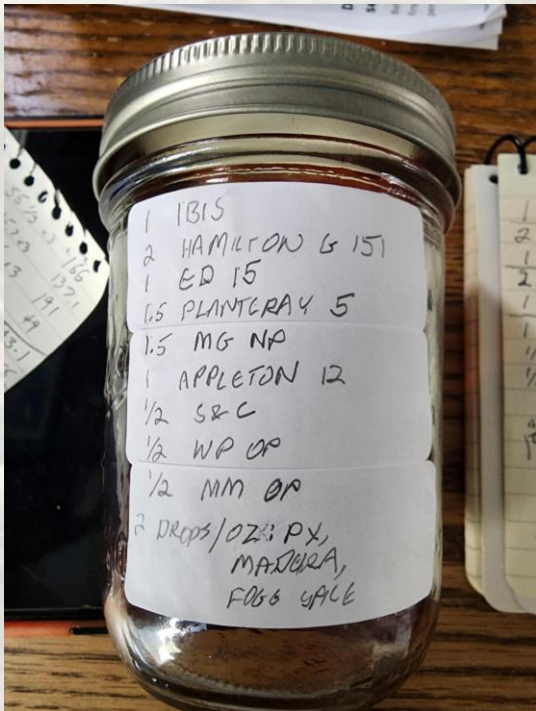 1 IBIS
2 HAMILTON G 151
1 ED 15
1.5 PLANTERAY 5
1.5 MG NP
1 APPLETON 12
1/2 S&C
1/2 WP OP
1/2 MM OP
2 DROPS/OZ: PX,
MADERA,
FOGG